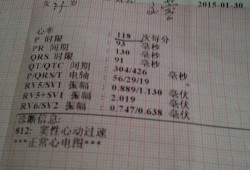 2015-01-30
心率 : 118 次每分
P 时限 : 93 毫秒
PR 间期 : 130 毫秒
QRS 时限 : 91 毫秒
QT/QTC 间期 : 304/426 毫秒
P/QRS/T 电轴 : 56/29/19 °
RV5/SV1 振幅 : 0.889/1.130 毫伏
RV5+SV1 振幅 : 2.019 毫伏
RV6/SV2 振幅 : 0.747/0.638 毫伏
诊断信息:
812: 窦性心动过速
**正常心电图**